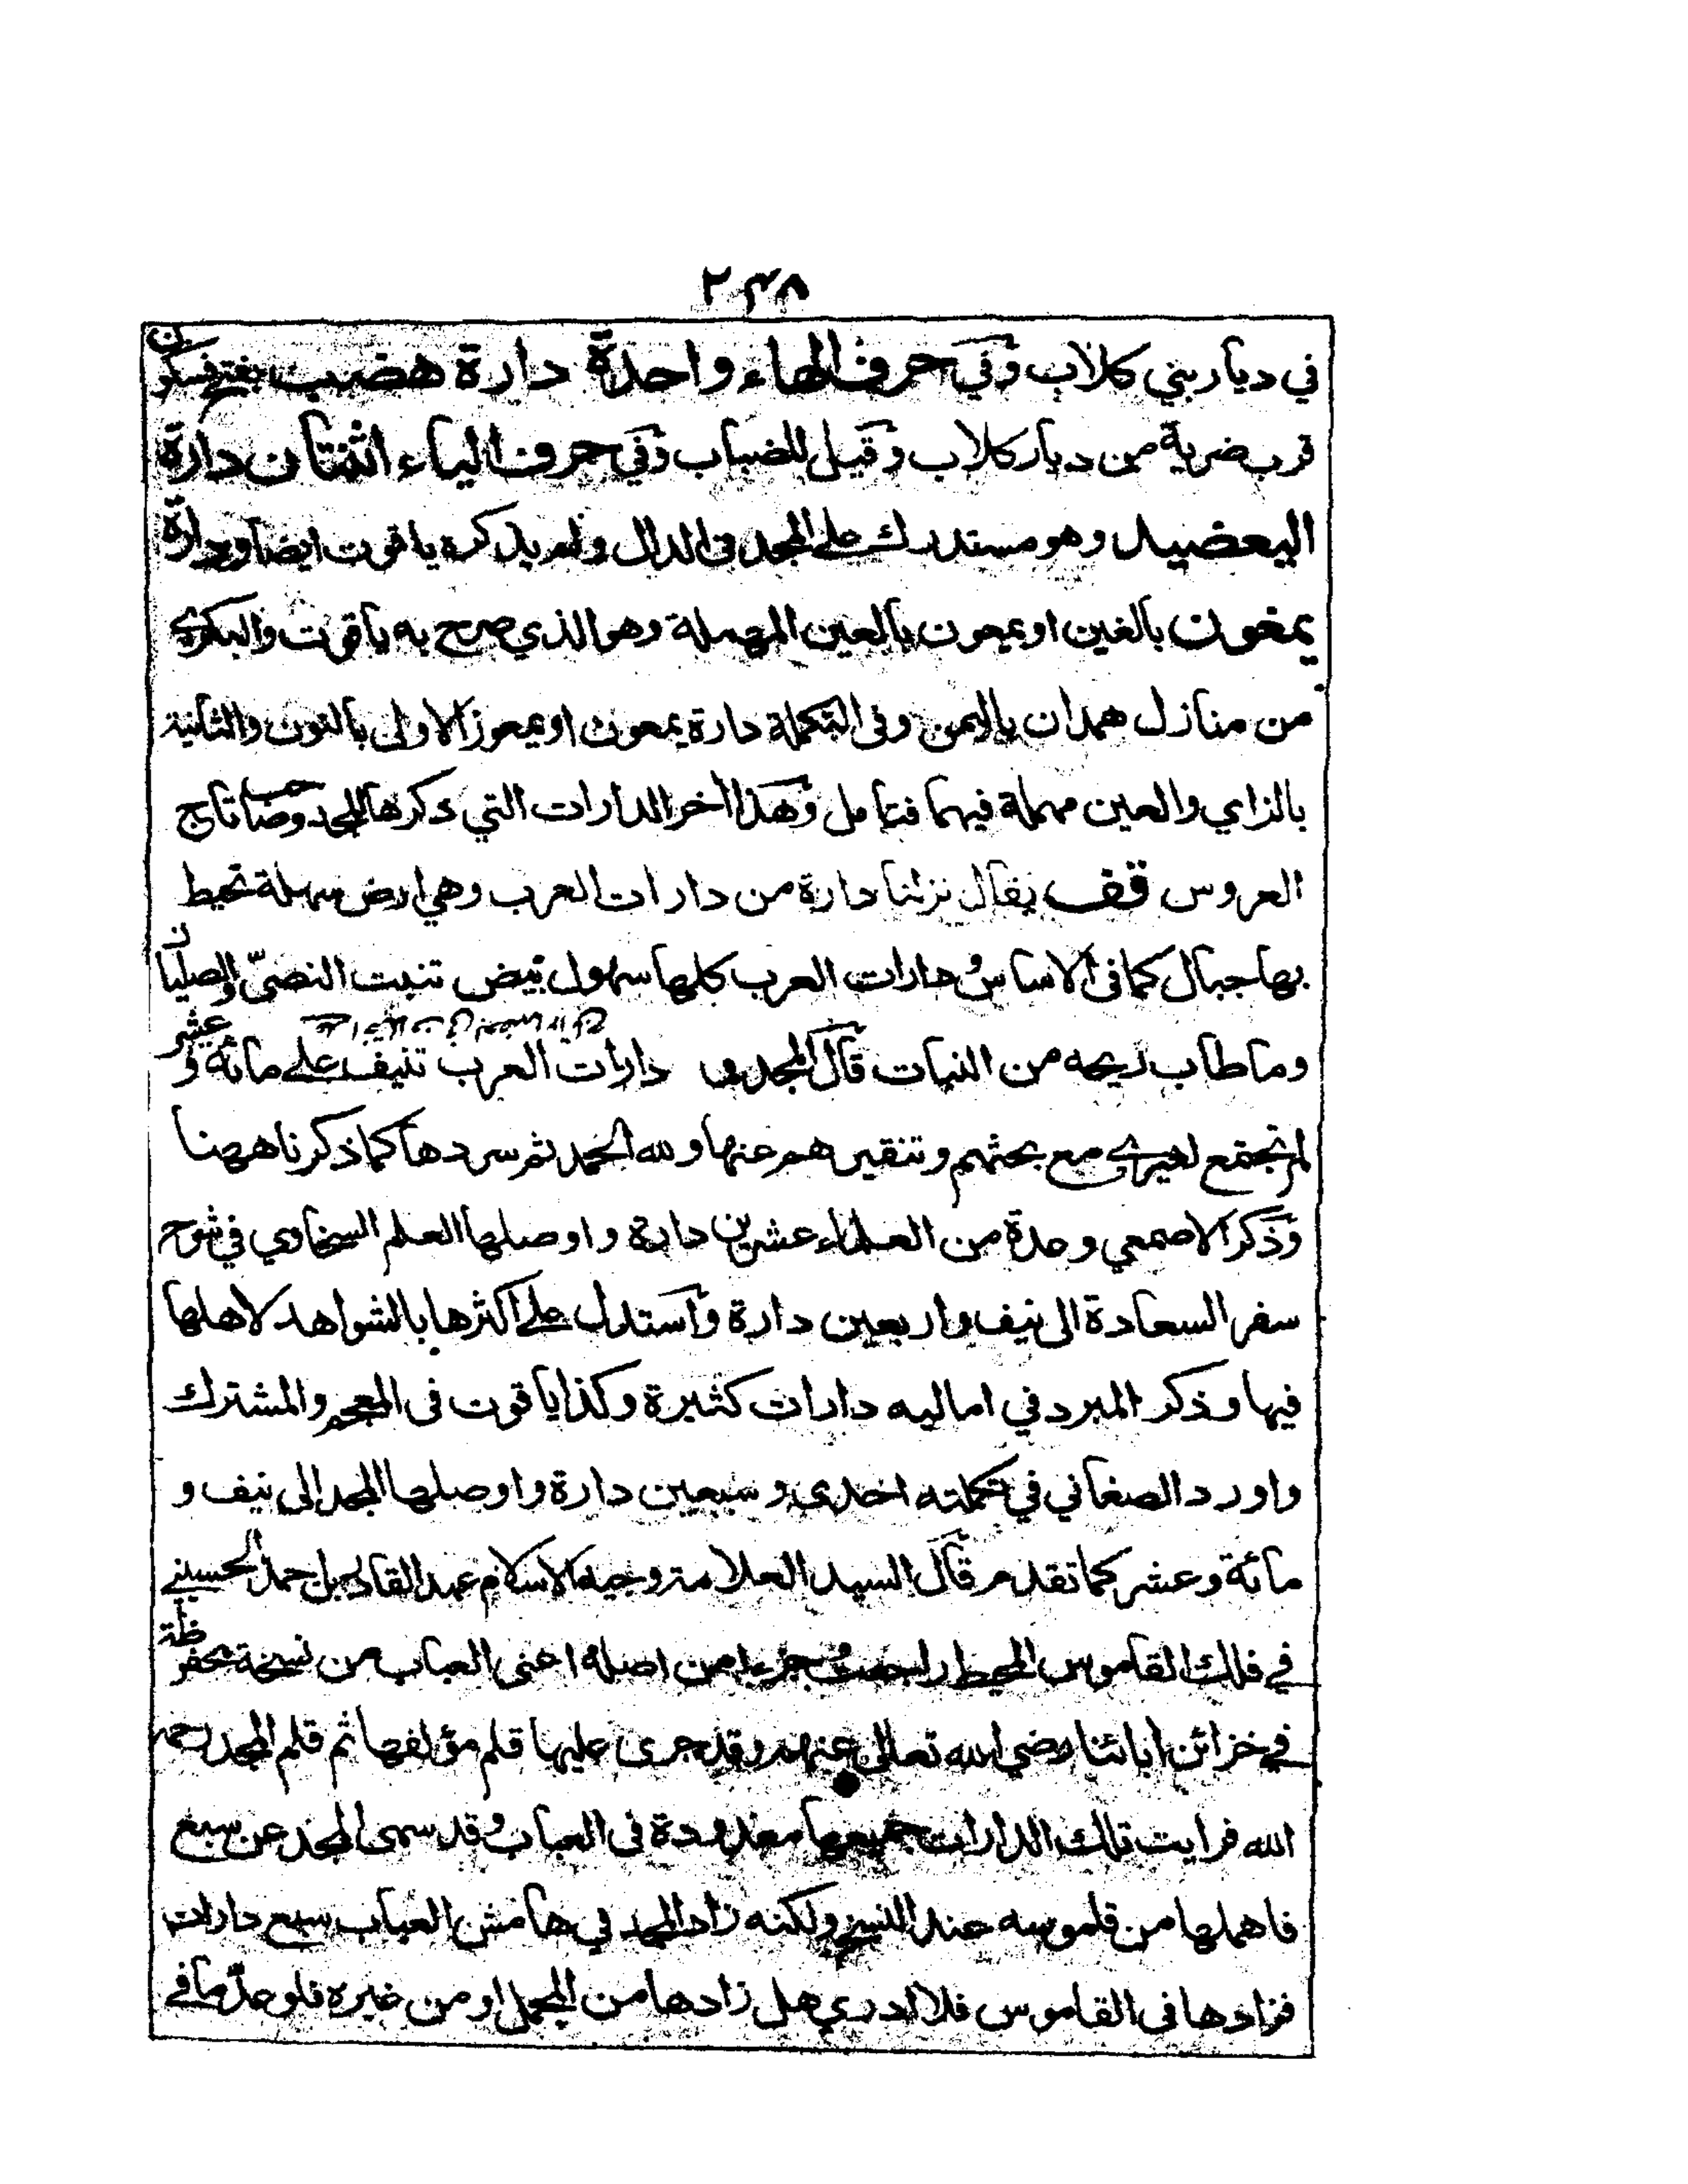 ٢٣٨
في ديار بني كلاب وفي حرف الهاء واحدة دارة هضب بفتح فسكون
قرب ضرية من ديار كلاب وقيل للضباب وفي حرف الياء اثنتان دارة
اليعضيد وهو مستدرك على المجد فى الدال ولم يذكره ياقوت ايضا ودارة
يمغون بالغين او يمعون بالعين المهملة وهو الذي صرح به ياقوت والبكرى
من منازل همدان باليمن وفى التكملة دارة يمعون او يمعوز الاولى بالنون والثانية
بالزاي والعين مهملة فيهما فتامل وهذا اخر الدارات التي ذكرها المجد وصاحب تاج
العروس قف يقال نزلنا دارة من دارات العرب وهي ارض سهلة تحيط
بها جبال كما فى الاساس ودارات العرب كلها سهول بيض تنبت النصيّ والصليان
وما طاب ريحه من النبات قال المجد دارات العرب تنيف على مائة وعشر
لم تجتمع لغيرى مع بحثهم وتنقيرهم عنها ولله الحمد ثم سردها كما ذكرنا ههنا
وذكر الاصمعي وعدة من العلماء عشرين دارة واوصلها العلم السخاوي في شرح
سفر السعادة الى نيف واربعين دارة واستدل على اكثرها بالشواهد لاهلها
فيها وذكر المبرد في اماليه دارات كثيرة وكذا ياقوت فى المعجم والمشترك
واورد الصغاني في تكملته احدى وسبعين دارة واوصلها المجد الى نيف و
مائة وعشر كما تقدم قال السيد العلامة وجيه الاسلام عبد القادر بن احمد الحسيني
في فلك القاموس المحيط راجعت جزءا من اصله اعنى العباب من نسخة محفوظة
في خزائن ابائنا رضي الله تعالى عنهم وقد جرى عليها قلم مؤلفها ثم قلم المجد رحمه
الله فرايت تلك الدارات جميعها معدودة فى العباب وقد سهى المجد عن سبع
فاهملها من قاموسه عند النسخ ولكنه زاد المجد في هامش العباب سبع دارات
فزادها فى القاموس فلا ادري هل زادها من المجمل او من غيره فلو عدّ ما في